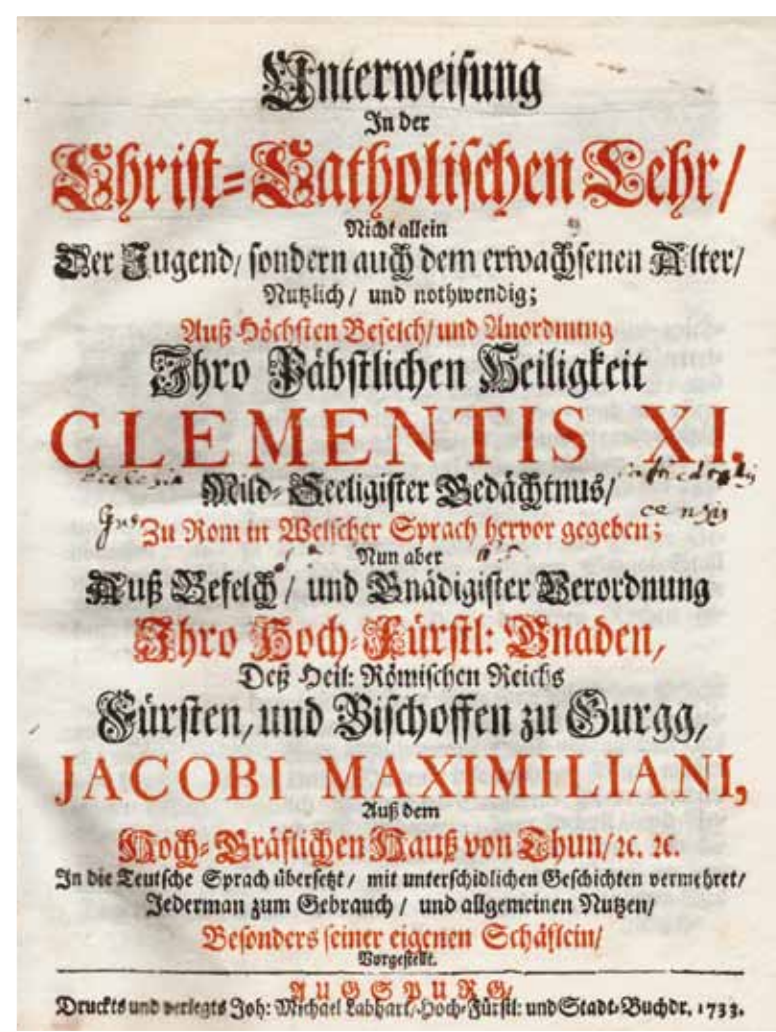 Unterweisung
In der
Christ-Catholischen Lehr/
Nicht allein
Der Jugend/ sondern auch dem erwachsenen Alter/
Nutzlich/ und nothwendig;
Auß Höchsten Befelch/ und Anordnung
Ihro Päbstlichen Heiligkeit
CLEMENTIS XI,
Mild-Seeligister Bedächtnus/
Zu Rom in Welscher Sprach hervor gegeben;
Nun aber
Auß Befelch/ und Gnädigister Verordnung
Ihro Hoch-Fürstl: Gnaden,
Deß Heil: Römischen Reichs
Fürsten, und Bischoffen zu Gurgg,
JACOBI MAXIMILIANI,
Auß dem
Hoch-Gräflichen Hauß von Thun/ ꝛc. ꝛc.
In die Teutsche Sprach übersetzt/ mit unterschidlichen Geschichten vermehret/
Jederman zum Gebrauch/ und allgemeinen Nutzen/
Besonders seiner eigenen Schäflein/
Vorgestellt.
AUGSPURG/
Druckts und verlegts Joh: Michael Labhart/ Hoch-Fürstl: und Stadt-Buchdr. 1733.